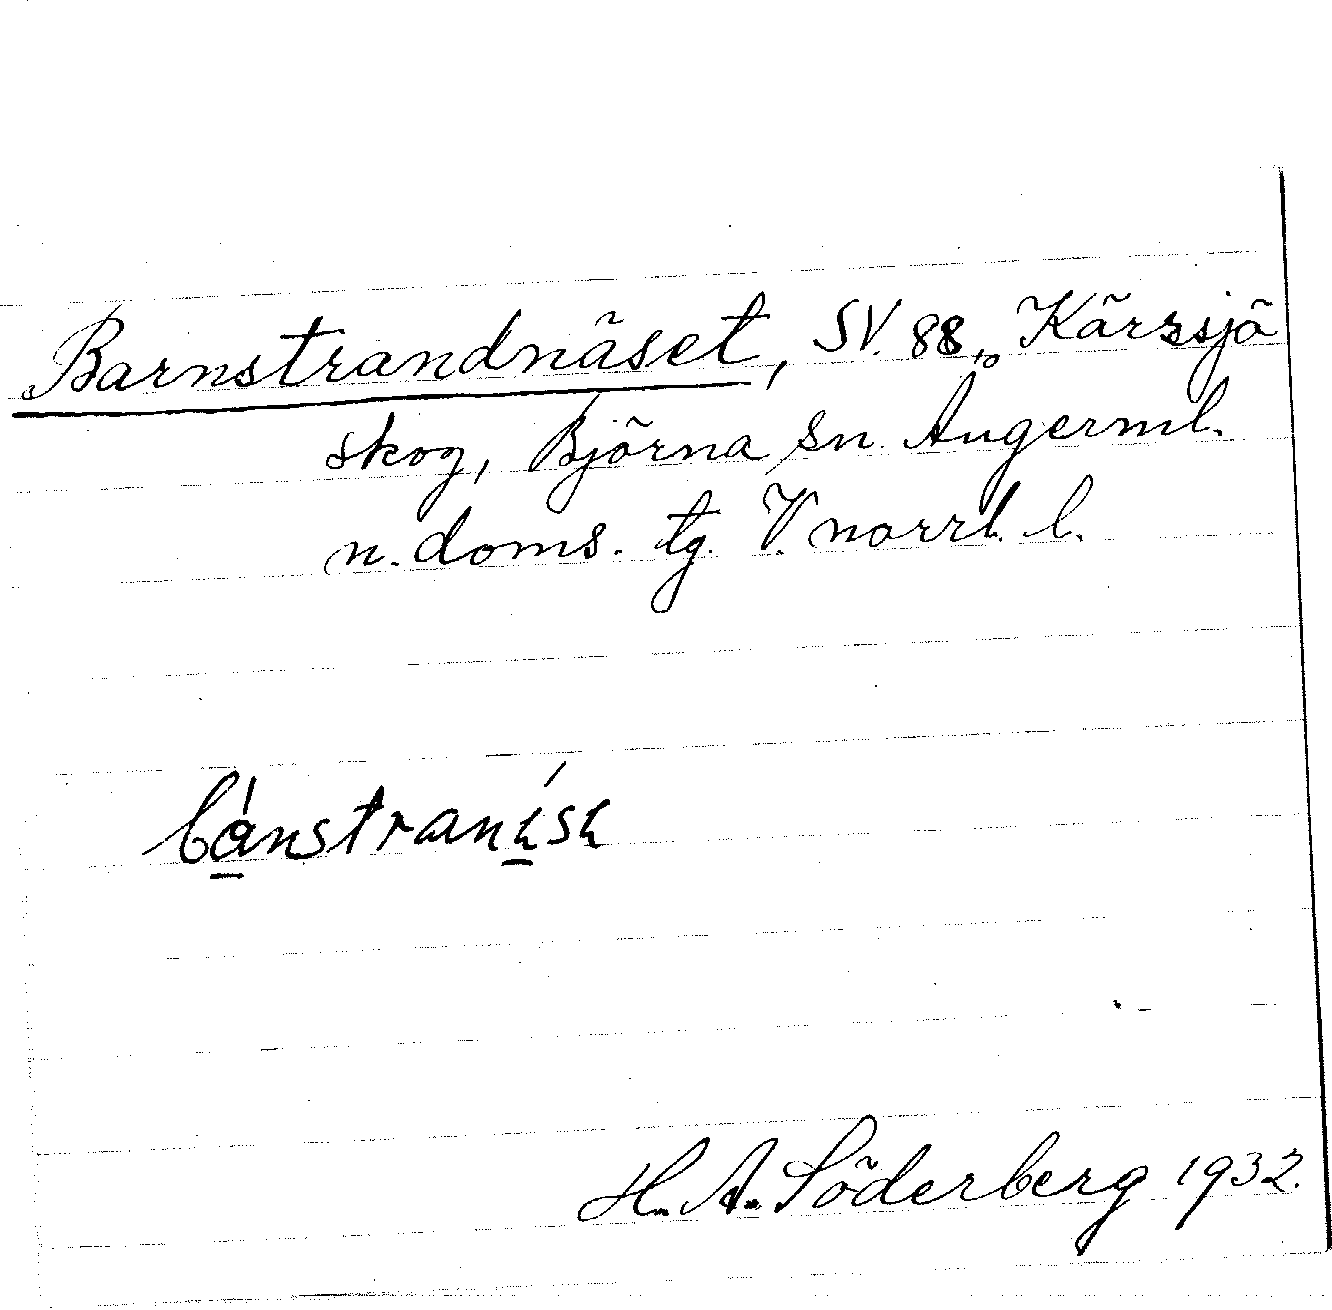 Barnstrandnäset, SV. 88, Kärrsjö
skog, Björna sn Ångerml.
n. doms. tg. V. norrl. l.
H. A. Söderberg 1932.